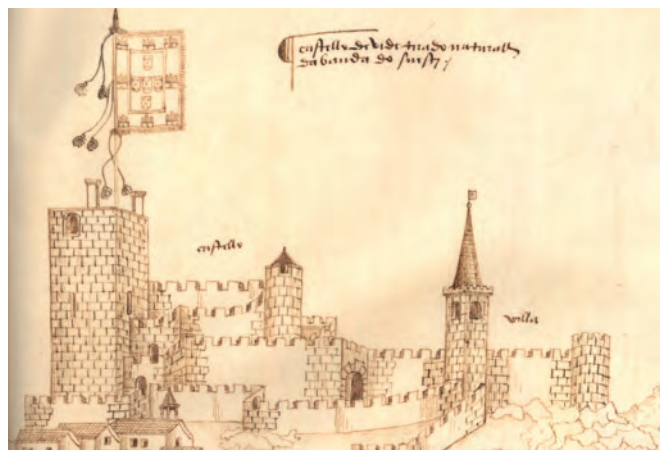 castello de vide tirado naturall
da banda do suest
castello
villa